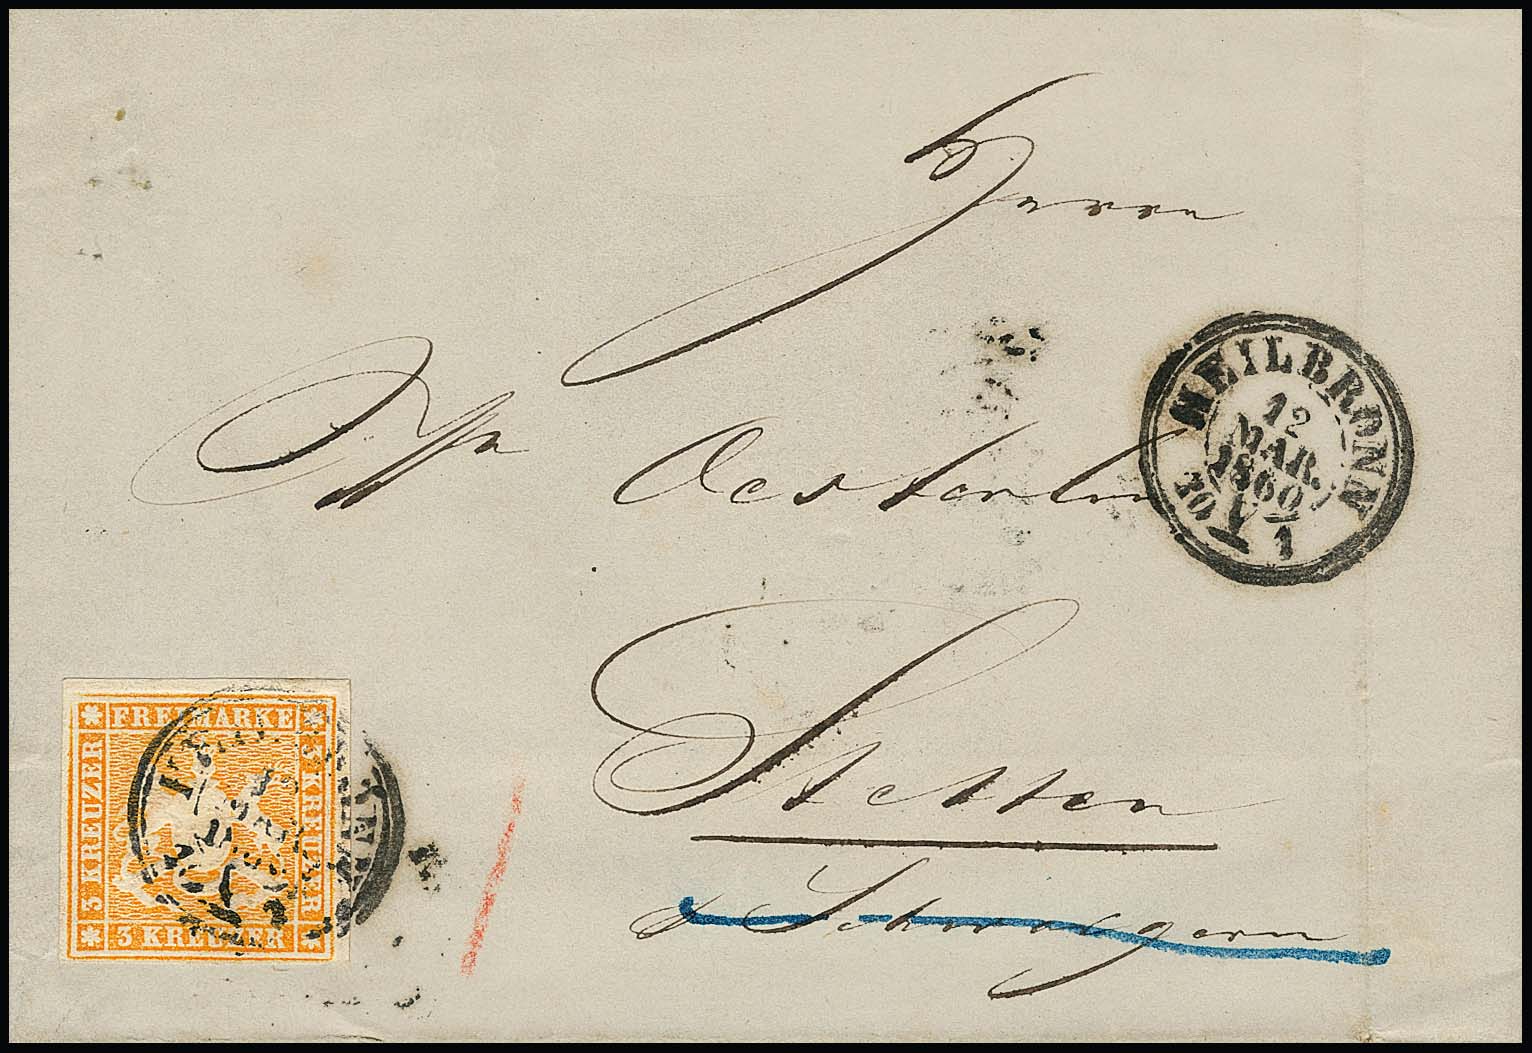 Herrn
Oesterlen
HEILBRONN
12
MÄR.
1860
10 1
Stetten
Schwaigern
FREIMARKE
3 KREUZER
3 KREUZER
3 KREUZER